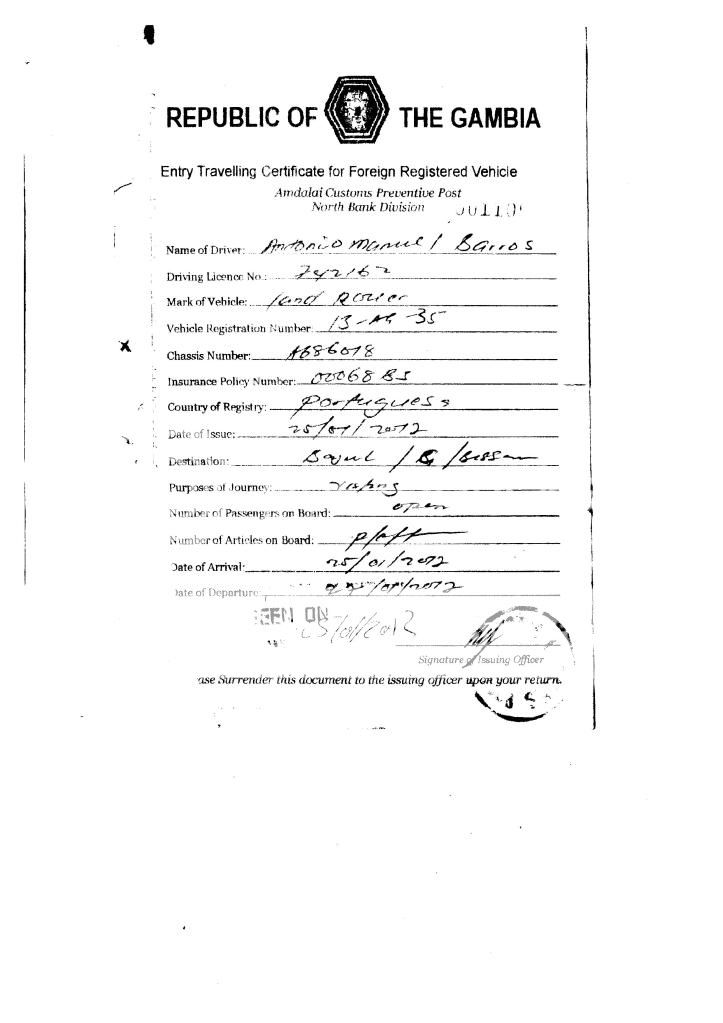 REPUBLIC OF THE GAMBIA
Entry Travelling Certificate for Foreign Registered Vehicle
Amdalai Customs Preventive Post
North Bank Division
Name of Driver: Antonio Manuel Barros
Driving Licence No.: 742162
Mark of Vehicle: Land Rover
Vehicle Registration Number: 13-AG-35
Chassis Number: A686018
Insurance Policy Number: 00068 BS
Country of Registry: Portuguess
Date of Issue: 25/01/2012
Destination: Banjul / G/Bissau
Purposes of Journey:
Number of Passengers on Board: open
Number of Articles on Board:
Date of Arrival: 25/01/2012
Date of Departure: /01/2012
SEEN ON 25/01/2012
Signature of Issuing Officer
ase Surrender this document to the issuing officer upon your return.